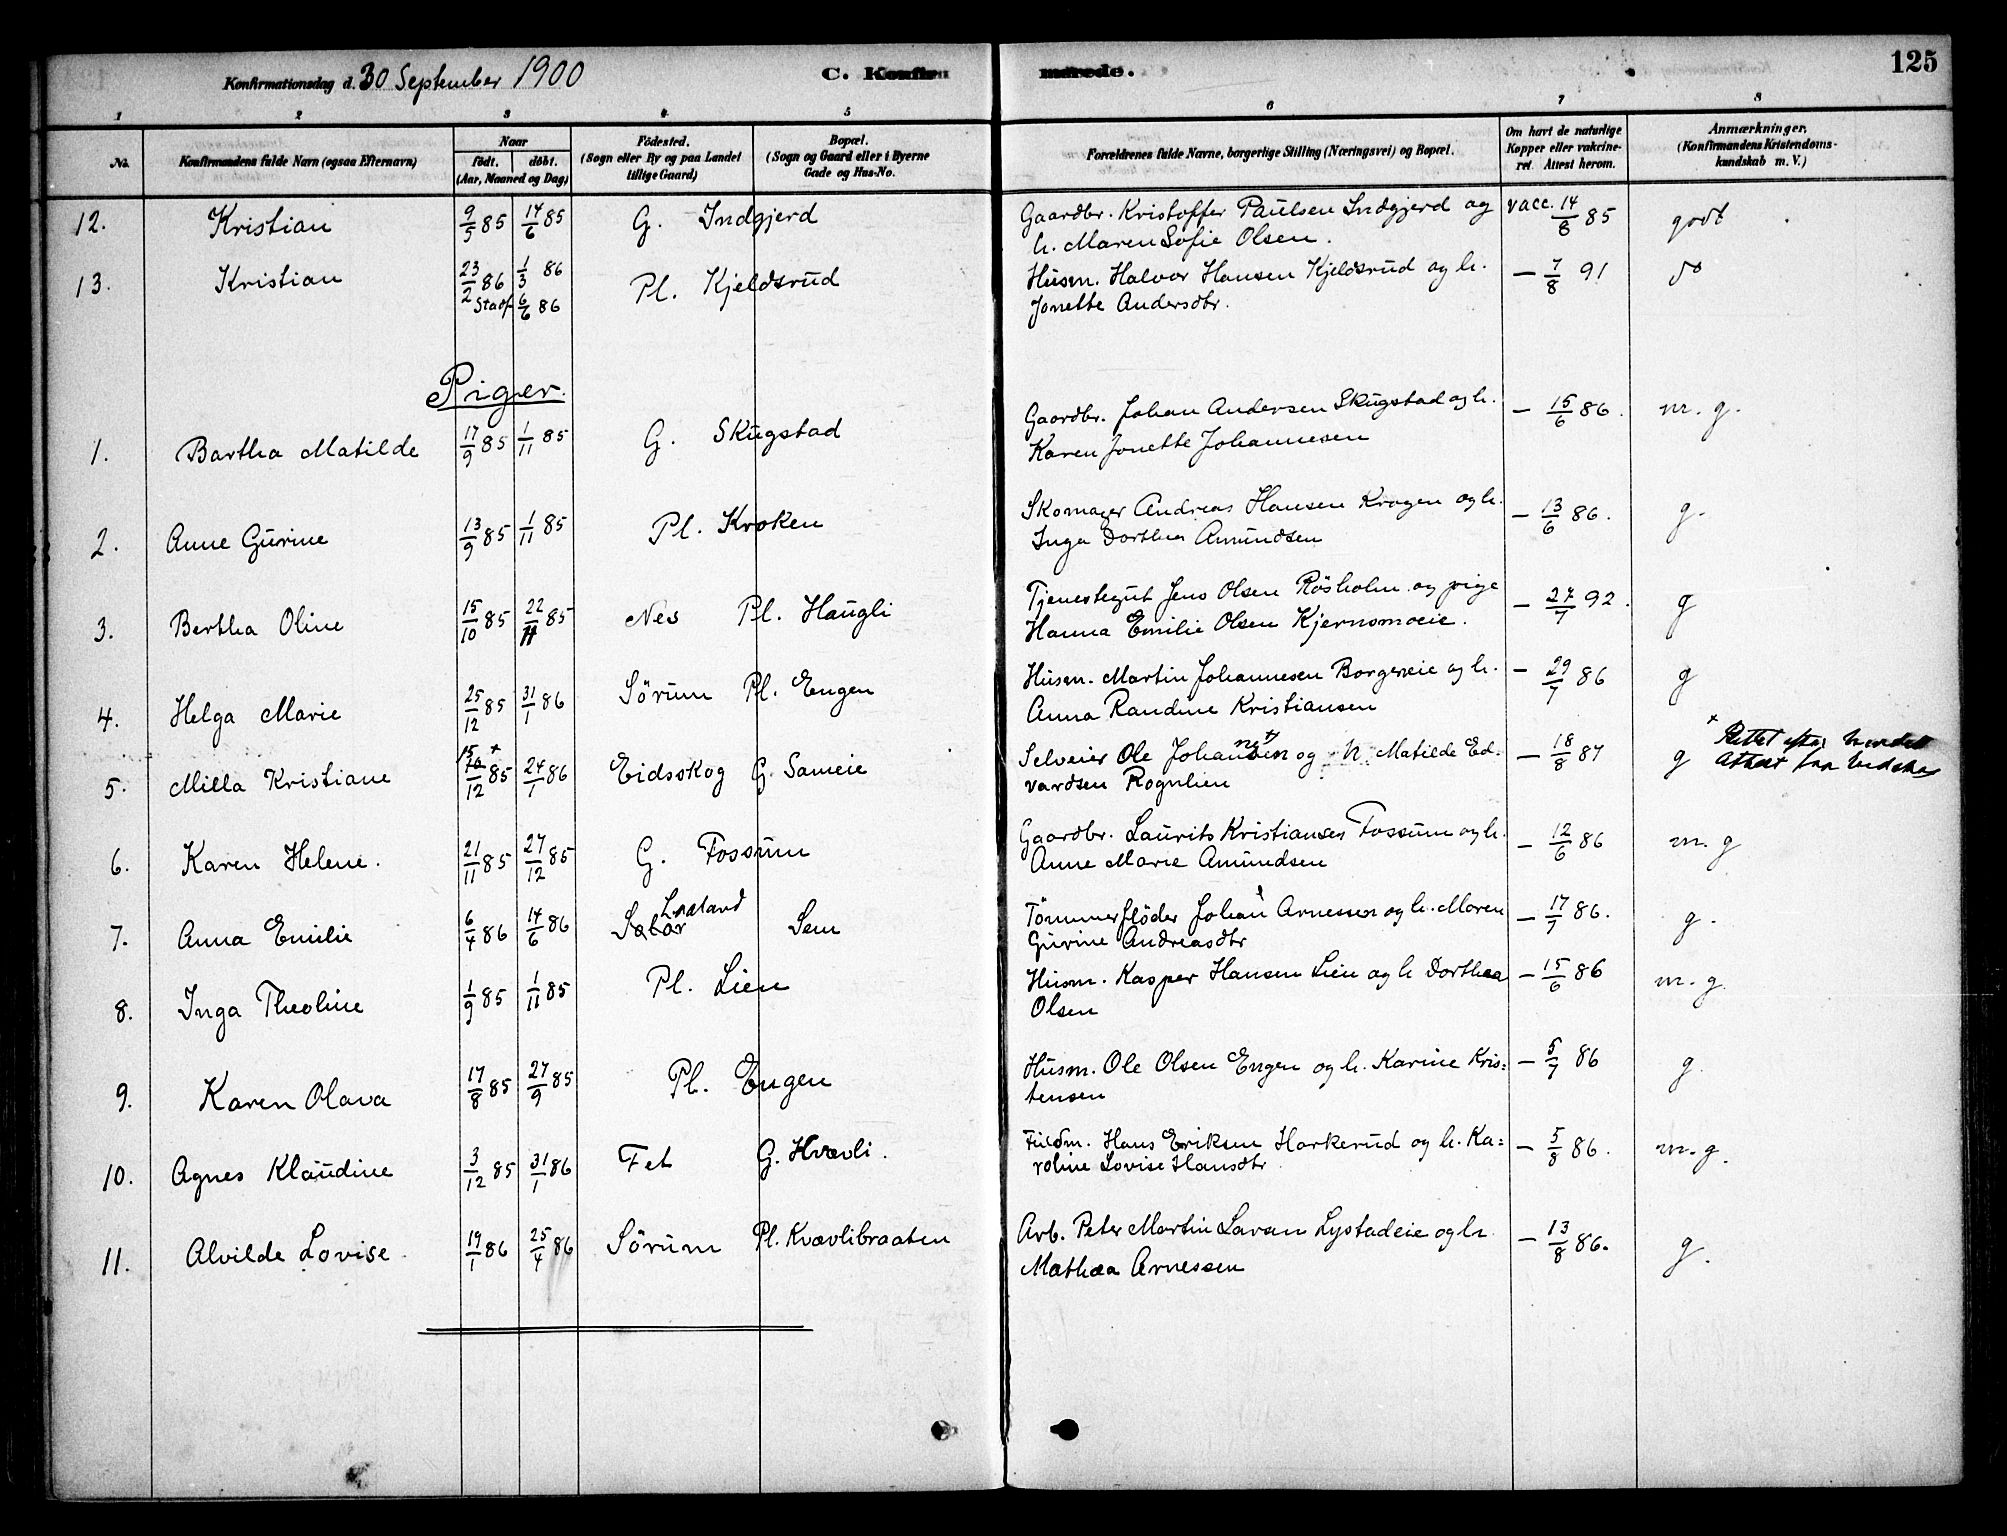 Konfirmationsdag d. 30 September 1900 C. Konfirmerede. 125
1 2 3 4 5 6 7 8
No. Konfirmandens fulde Navn (ogsaa Efternavn) Naar födt. döbt. (Aar, Maaned og Dag) Födested. (Sogn eller By og paa Landet tillige Gaard) Bopæl. (Sogn og Gaard eller i Byerne Gade og Hus-No. Forældrenes fulde Navne, borgerlige Stilling (Næringsvei) og Bopæl. Om havt de naturlige Kopper eller vakcineret. Attest herom. Anmærkninger. (Konfirmandens Kristendomskundskab m. V.)
12. Kristian 9/5 85 14/6 85 G. Indgjerd Gaardbr. Kristoffer Paulsen Indgjerd og vacc. 14/8 85 godt
h. Maren Sofie Olsen.
13. Kristian 23/2 86 1/3 86 Pl. Kjeldsrud Husm. Halvor Hansen Kjeldsrud og h. — 7/8 91 do
Stadf. 6/6 86 Jonette Andersdtr.
Piger.
1. Bartha Matilde 17/9 85 1/11 85 G. Skugstad Gaardbr. Johan Andersen Skugstad og h. — 15/6 86. m. g.
Karen Jonette Johannesen
2. Anne Gurine 13/9 85 1/11 85 Pl. Kroken Skomager Andreas Hansen Krogen og h. — 13/6 86. g.
Inga Dorthea Amundsen
3. Bertha Oline 15/10 85 22/11 85 Nes Pl. Haugli Tjenestegut Jens Olsen Rösholm og pige — 27/7 92. g
Hanna Emilie Olsen Kjernsmoeie.
4. Helga Marie 25/12 85 31/1 86 Sörum Pl. Engen Husm. Martin Johannesen Borgeneie og h. — 29/7 86 g
Anna Randine Kristiansen
5. Milla Kristiane 15/12 85 24/1 86 Eidsskog G. Sameie Selveier Ole Johannesen og h. Matilde Ed- — 18/8 87 g × Rettet efter
vardsen Rognlien Attest fra
6. Karen Helene. 21/11 85 27/12 85 G. Fossum Gaardbr. Laurits Kristiansen Fossum og h. — 12/6 86 m. g
Anne Marie Amundsen
7. Anna Emilie 6/4 86 14/6 86 Sem Tömmerflöder Johan Arnessen og h. Maren — 17/7 86. g.
Gurine Andreasdtr
8. Inga Theoline 1/9 85 1/11 85 Pl. Lien Husm. Kasper Hansen Lien og h Dorthea — 15/6 86 m. g
Olsen
9. Karen Olava 17/8 85 27/9 85 Pl. Engen Husm. Ole Olsen Engen og h. Karine Kris- — 5/7 86 g
tensen
10. Agnes Klaudine 3/12 85 31/1 86 Fet G. Hvævli. Fuldm. Hans Eriksen Harkerud og h. Ka- — 5/8 86. m. g.
roline Lovise Hansdtr
11. Alvilde Lovise 19/1 86 25/4 86 Sörum Pl. Kvævlibraaten Arb. Peter Martin Lavan Lystadeie og h — 13/8 86. g.
Mathea Arnessen